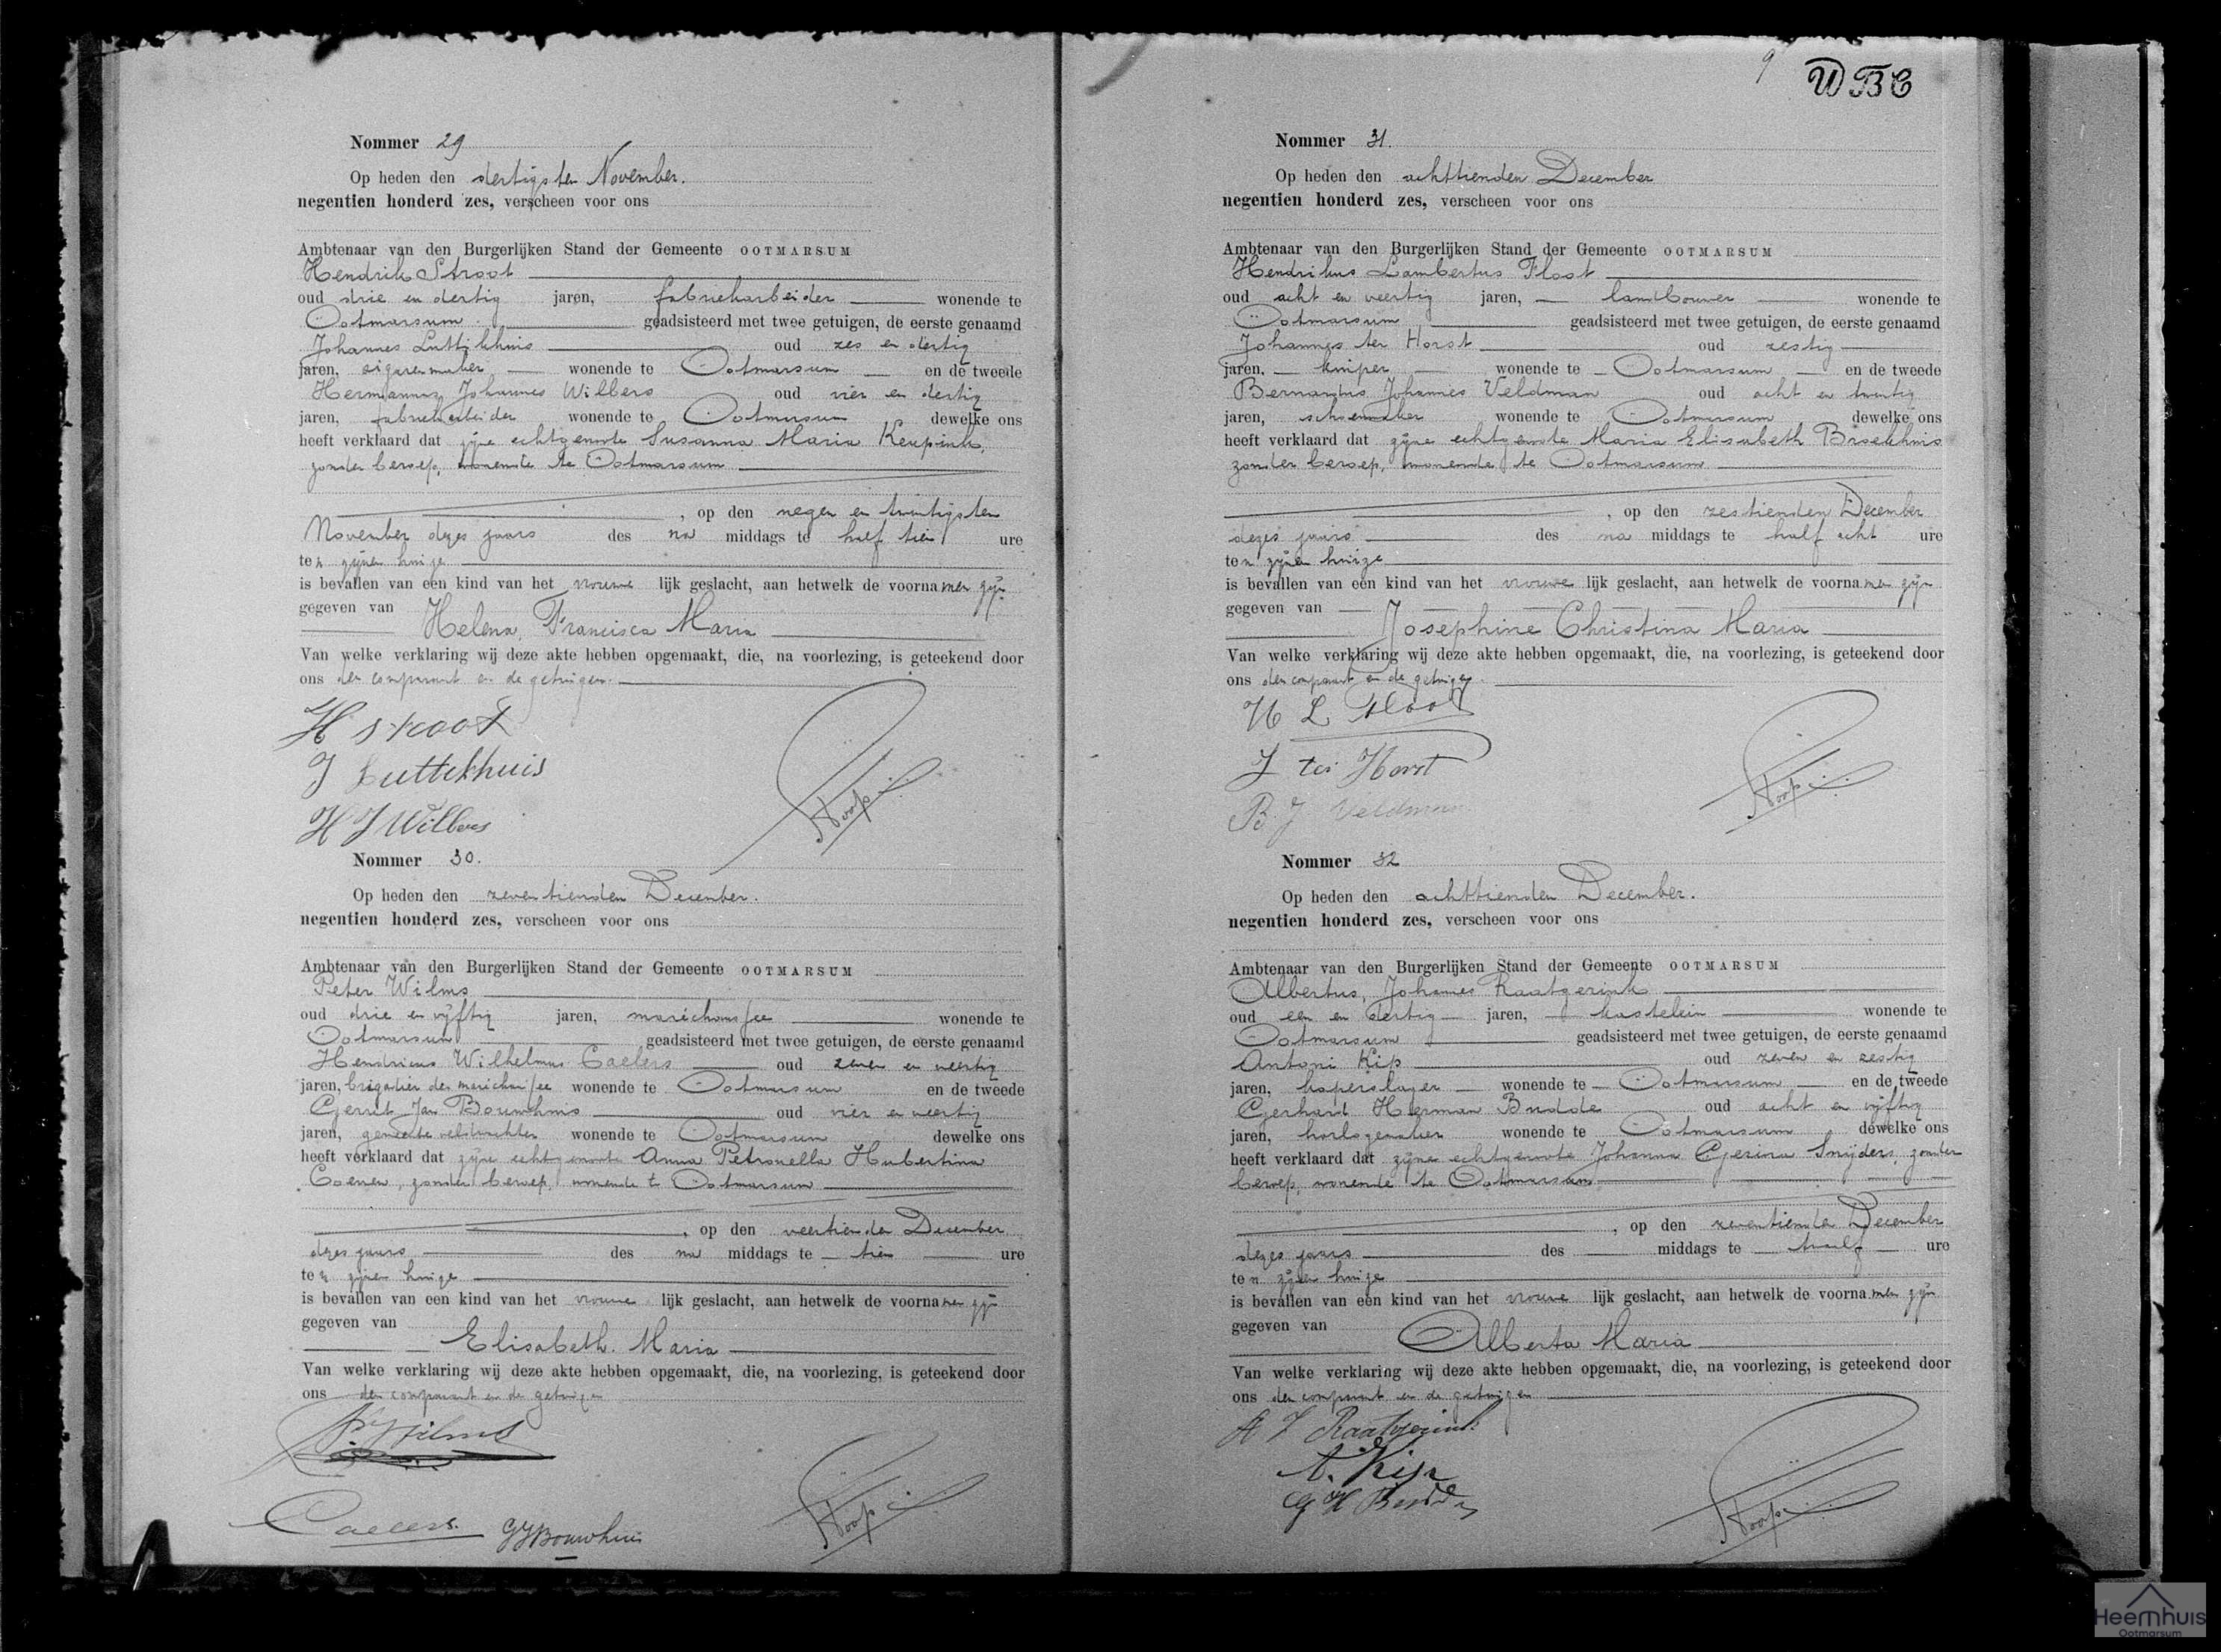 Nommer 29
Op heden den dertigsten November.
negentien honderd zes, verscheen voor ons
Ambtenaar van den Burgerlijken Stand der Gemeente OOTMARSUM
Hendrik Stroot
oud drie en dertig jaren, fabriekarbeider wonende te
Ootmarsum geadsisteerd met twee getuigen, de eerste genaamd
Johannes Luttikhuis oud zes en dertig
jaren, sigarenmaker wonende te Ootmarsum en de tweede
Hermannus Johannes Wilbers oud vier en dertig
jaren, fabriekarbeider wonende te Ootmarsum dewelke ons
heeft verklaard dat zijne echtgenoote Susanna Maria Keupink,
zonder beroep, wonende te Ootmarsum
, op den negen en twintigsten
November dezes jaars des na middags te half tien ure
ten zijnen huize
is bevallen van een kind van het vrouwe lijk geslacht, aan hetwelk de voornamen zijn
gegeven van Helena, Francisca Maria
Van welke verklaring wij deze akte hebben opgemaakt, die, na voorlezing, is geteekend door
ons den comparant en de getuigen.
H Stroot
J Luttekhuis
H J Wilbers
Nommer 30.
Op heden den zeventienden December.
negentien honderd zes, verscheen voor ons
Ambtenaar van den Burgerlijken Stand der Gemeente OOTMARSUM
Peter Wilms
oud drie en vijftig jaren, maréchaussee wonende te
Ootmarsum geadsisteerd met twee getuigen, de eerste genaamd
Hendricus Wilhelmus Caelers oud zeven en veertig
jaren, brigadier der marechaussee wonende te Ootmarsum en de tweede
Gerrit Jan Bouwhuis oud vier en veertig
jaren, gemeente veldwachter wonende te Ootmarsum dewelke ons
heeft verklaard dat zijne echtgenoote Anna Petronella Hubertina
Coenen, zonder beroep, wonende te Ootmarsum
, op den veertienden December
dezes jaars des na middags te tien ure
ten zijnen huize
is bevallen van een kind van het vrouwe lijk geslacht, aan hetwelk de voornamen zijn
gegeven van
Elisabeth. Maria
Van welke verklaring wij deze akte hebben opgemaakt, die, na voorlezing, is geteekend door
ons den comparant en de getuigen
P Wilms
Caelers. GJBouwhuis
9 WBC
Nommer 31.
Op heden den achttienden December
negentien honderd zes, verscheen voor ons
Ambtenaar van den Burgerlijken Stand der Gemeente OOTMARSUM
Hendrikus Lambertus Floot
oud acht en veertig jaren, landbouwer wonende te
Ootmarsum geadsisteerd met twee getuigen, de eerste genaamd
Johannes ter Horst oud zestig
jaren, kuiper wonende te Ootmarsum en de tweede
Bernardus Johannes Veldman oud acht en twintig
jaren, schoenmaker wonende te Ootmarsum dewelke ons
heeft verklaard dat zijne echtgenoote Maria Elisabeth Broekhuis
zonder beroep, wonende te Ootmarsum
, op den zestienden December
dezes jaars des na middags te half acht ure
ten zijnen huize
is bevallen van een kind van het vrouwe lijk geslacht, aan hetwelk de voornamen zijn
gegeven van
Josephine Christina Maria
Van welke verklaring wij deze akte hebben opgemaakt, die, na voorlezing, is geteekend door
ons den comparant en de getuigen.
H L Floot
J ter Horst
B J Veldman
Nommer 32
Op heden den achttienden December.
negentien honderd zes, verscheen voor ons
Ambtenaar van den Burgerlijken Stand der Gemeente OOTMARSUM
Albertus, Johannes Raatgerink
oud een en dertig jaren, kastelein wonende te
Ootmarsum geadsisteerd met twee getuigen, de eerste genaamd
Antoni Kip oud zeven en zestig
jaren, koperslager wonende te Ootmarsum en de tweede
Gerhard Herman Budde oud acht en vijftig
jaren, horlogemaker wonende te Ootmarsum dewelke ons
heeft verklaard dat zijne echtgenoote Johanna Gesina Snijders, zonder
beroep, wonende te Ootmarsum
, op den zeventienden December
dezes jaars des middags te twaalf ure
ten zijnen huize
is bevallen van een kind van het vrouwe lijk geslacht, aan hetwelk de voornamen zijn
gegeven van
Alberta Maria
Van welke verklaring wij deze akte hebben opgemaakt, die, na voorlezing, is geteekend door
ons den comparant en de getuigen
A J Raatgerink
A. Kip
G H Budde
Heemhuis
Ootmarsum